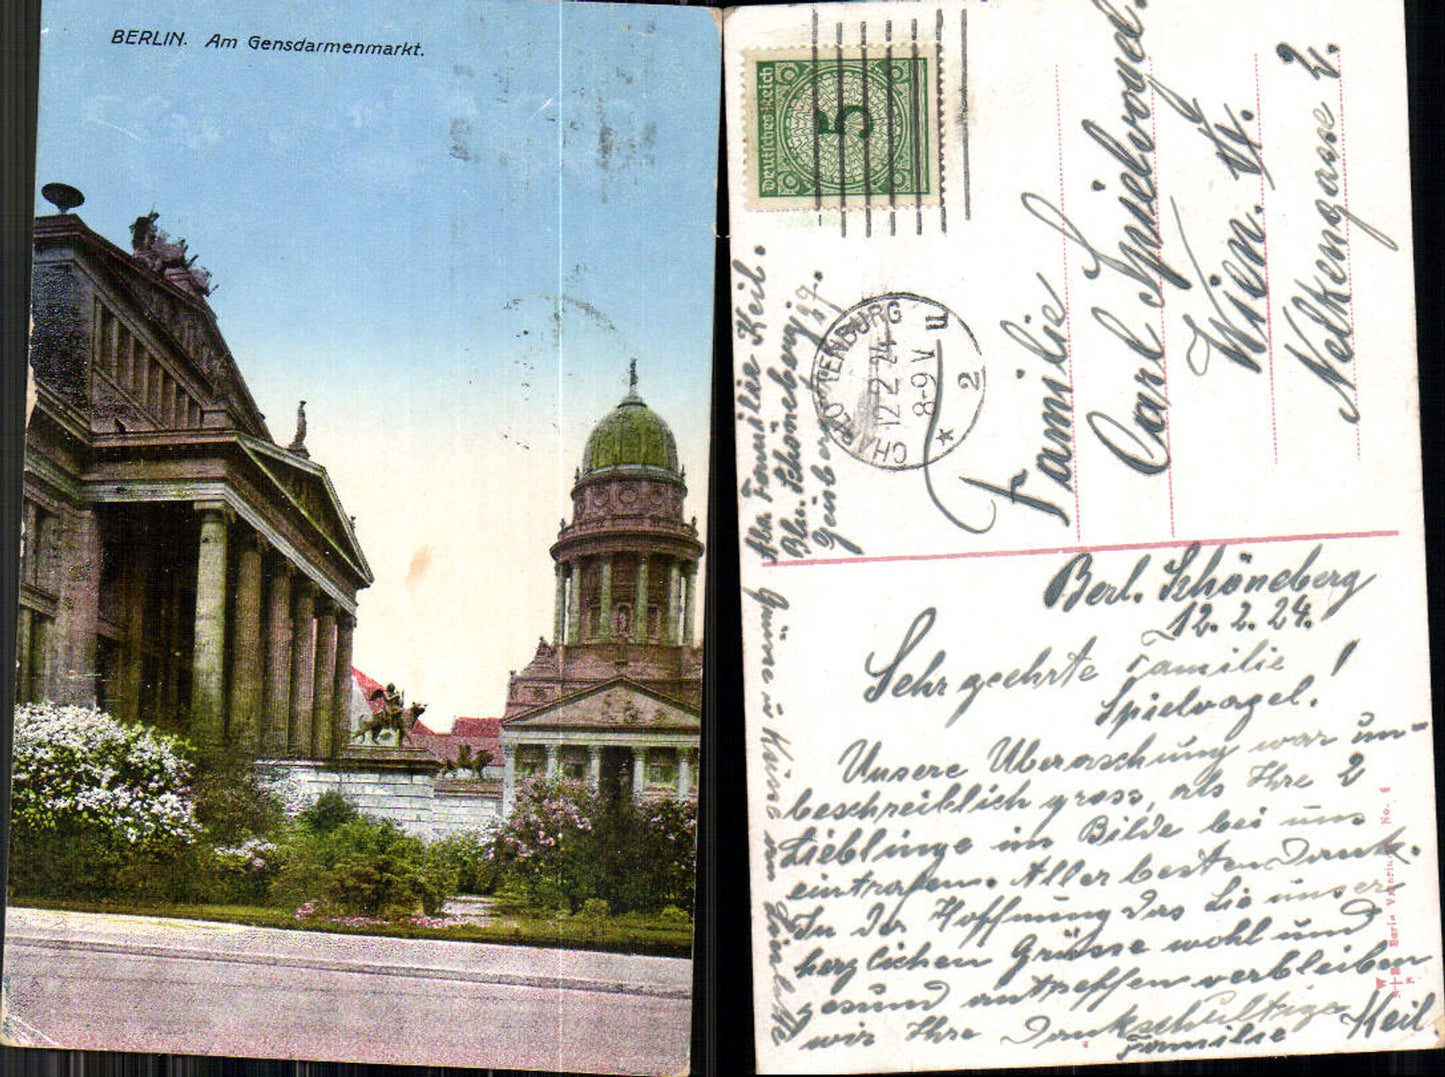 BERLIN. Am Gensdarmenmarkt.
Deutsches Reich
5
CHARLOTTENBURG
12.2.24
8-9 V
* 2 u
Familie
Carl Spielvogel.
Wien. VI.
Nelkengasse 2.
Abs. Familie Keil.
Bln. Schöneberg
Berl. Schöneberg
12. 2. 24.
Sehr geehrte Familie
Spielvogel!
Unsere Uberaschung war un=
beschreiblich gross, als Ihre 2
Lieblinge im Bilde bei uns
eintrafen. Aller besten Dank.
In der Hoffnung das Sie unsere
herzlichen Grüsse wohl und
gesund antreffen verbleiben
wir Ihre Dankschultige
Familie Keil.
No. 6